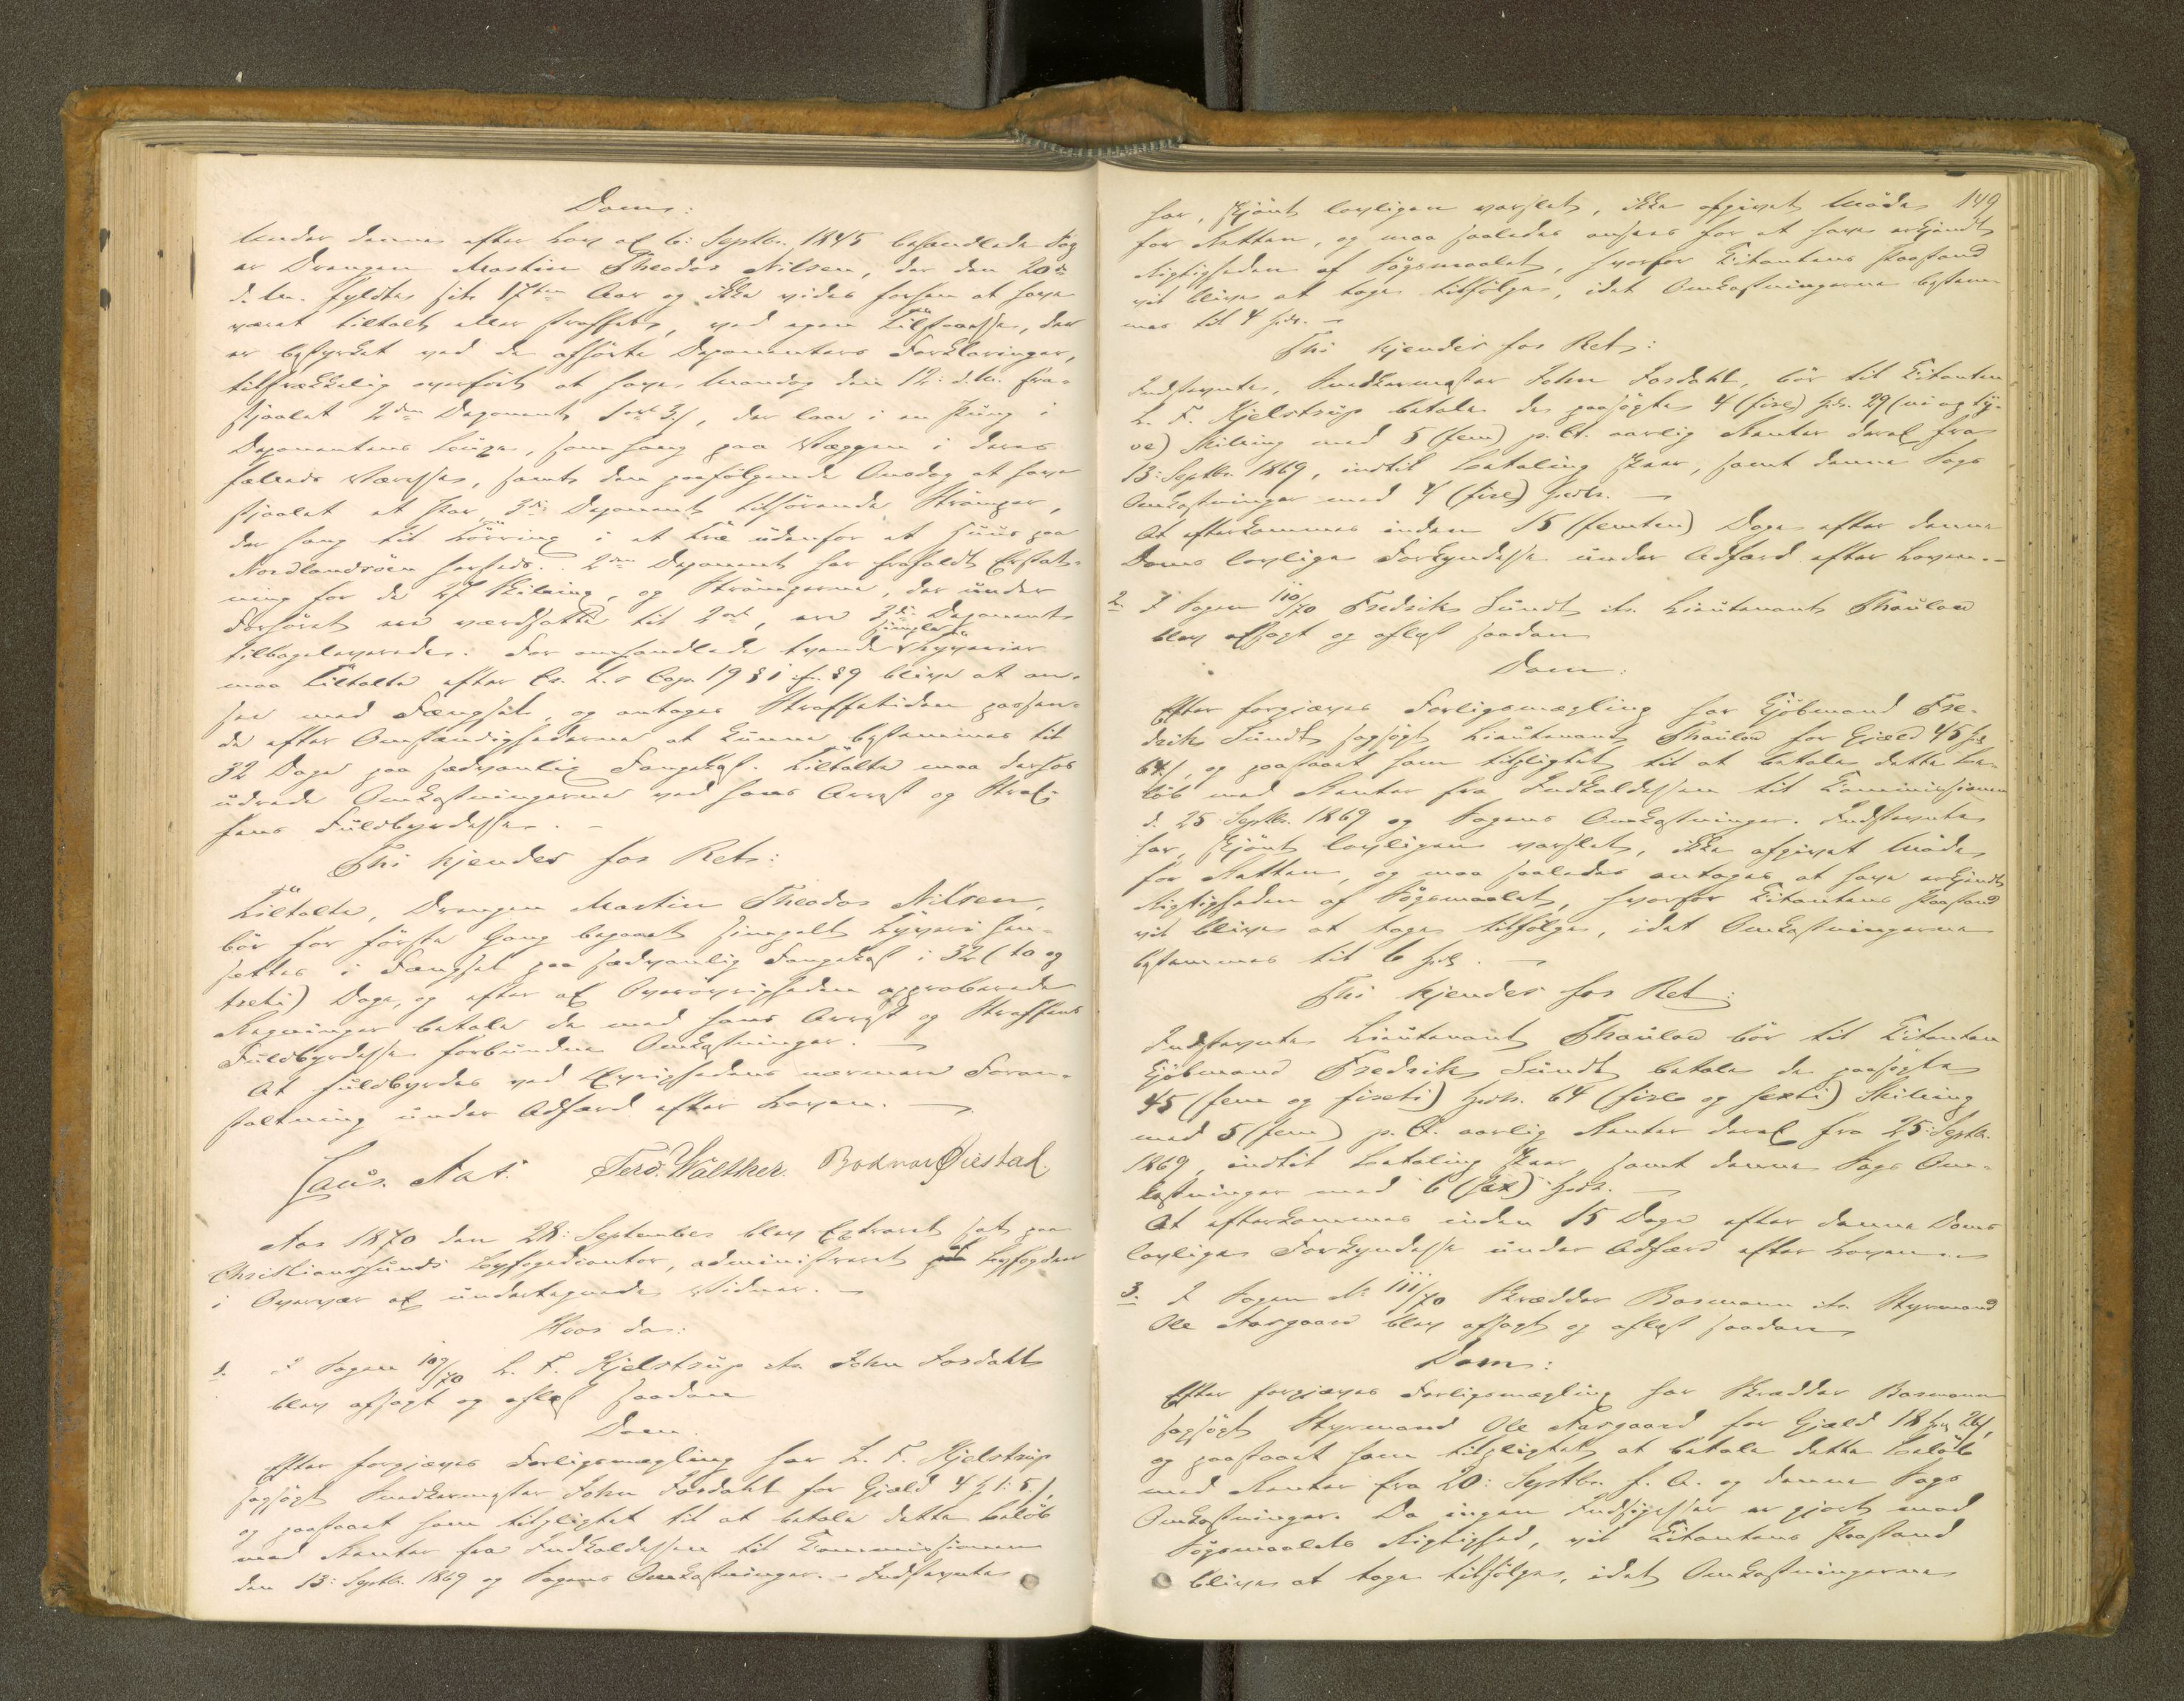 Dom:
Under denne efter Lov af 6: Septbr. 1845 behandlede Sag
er Drengen Martin Theodor Nilsen, der den 20de
d. M. fyldte sit 17tende Aar og ikke vides forhen at have
været tiltalt eller straffet, ved egen Tilstaaelse, der
er bestyrket ved de afhørte Deponenters Forklaringer,
tilstrækkelig overført at have Mandag den 12: d. M. fra-
stjaalet 2den Deponent 1 ort 3 s, der laae i en Pung i
Deponentens Lomme, som hang paa Væggen i deres
fælleds Værelse, samt den paafølgende Onsdag at have
stjaalet et Par 3die Deponent tilhørende Strømper,
der hang til Tørring i et Træ udenfor et Huus paa
Nordlandsøen hersteds. 2den Deponent har frafaldt Erstat-
ning for de 27 Skilling, og Strømperne, der under
Forhøret ere værdsatte til 2 ort, ere 3die Deponent
tilbageleverede. For omhandlede tvende simple Tyverier
maa Tiltalte efter Cr. L.s Cap. 19 § 1 cfr. § 9 blive at an-
see med Fængsel, og antages Straffetiden passen-
de efter Omstændighederne at kunne bestemmes til
32 Dage paa sædvanlig Fangekost. Tiltalte maa derhos
udrede Omkostningerne ved hans Arrest og Straf-
fens Fuldbyrdelse. –
Thi kjendes for Ret:
Tiltalte, Drengen Martin Theodor Nilsen,
bør for første Gang begaaet simpelt Tyveri hen-
sættes i Fængsel paa sædvanlig Fangekost i 32 (to og
treti) Dage, og efter af Overøvrigheden approberede
Regninger betale de med hans Arrest og Straffens
Fuldbyrdelse forbundne Omkostninger. –
At fuldbyrdes ved Øvrighedens nærmere Foran-
staltning under Adfærd efter Loven. –
Ferd. Walther. Bodvar Øiestad.
Aar 1870 den 28: September blev Extraret sat paa
Christianssunds Byfogedcontor, administreret af Byfogden
i Overvær af undertegnede Vidner. –
Hvor da:
1. I Sagen 109/70 L. F. Kjelstrup ctr. John Jordahl
blev afsagt og aflæst saadan
Dom.
Efter forgjæves Forligsmægling har L. F. Kjelstrup
sagsøgt Snedkermester John Jordahl for Gjæld 4 Spd 1: 5 s,
og paastaaet ham tilpligtet til at betale dette Beløb
med Renter fra Indkaldelsen til Kommissionen
den 13: Septbr. 1869 og Sagens Omkostninger. – Indstevnte
149
har, skjønt lovligen varslet, ikke afgivet Møde
for Retten, og maa saaledes ansees for at have erkjendt
Rigtigheden af Søgsmaalet, hvorfor Citantens Paastand
vil blive at tage tilfølge, idet Omkostningerne bestem-
mes til 4 Spd. –
Thi kjendes for Ret:
Indstevnte, Snedkermester John Jordahl, bør til Citanten
L. F. Kjelstrup betale de paasøgte 4 (fire) Spd. 29 (ni og ty-
ve) Skilling med 5 (fem) p. Ct. aarlig Renter deraf fra
13: Septbr. 1869, indtil Betaling skeer, samt denne Sags
Omkostninger med 4 (fire) Spdlr. –
At efterkommes inden 15 (femten) Dage efter denne
Doms lovlige Forkyndelse under Adfærd efter Loven. –
2. I Sagen 110/70 Fredrik Sundt ctr. Lieutenant Thaulow
blev afsagt og aflæst saadan
Dom:
Efter forgjæves Forligsmægling har Kjøbmand Fre-
drik Sundt sagsøgt Lieutenant Thaulow for Gjæld 45 Spd
64 s, og paastaaet ham tilpligtet til at betale dette Be-
løb med Renter fra Indkaldelsen til Kommissionen
d. 25 Septbr. 1869 og Sagens Omkostninger. Indstevnte
har, skjønt lovligen varslet, ikke afgivet Møde
for Retten, og maa saaledes antages at have erkjendt
Rigtigheden af Søgsmaalet, hvorfor Citantens Paastand
vil blive at tage tilfølge, idet Omkostningerne
bestemmes til 6 Spd. –
Thi kjendes for Ret:
Indstevnte Lieutenant Thaulow bør til Citanten
Kjøbmand Fredrik Sundt betale de paasøgte
45 (fem og fireti) Spdlr. 64 (fire og sexti) Skilling
med 5 (fem) p. Ct. aarlig Renter deraf fra 25: Septbr.
1869, indtil Betaling skeer, samt denne Sags Om-
kostninger med 6 (sex) Spdr. –
At efterkommes inden 15 Dage efter denne Doms
lovlige Forkyndelse under Adfærd efter Loven. –
3. I Sagen No 111/70 Skrædder Bosmann ctr. Styrmand
Ole Aasgaard blev afsagt og aflæst saadan
Dom:
Efter forgjæves Forligsmægling har Skrædder Bosmann
sagsøgt Styrmand Ole Aasgaard for Gjæld 18 Spd 26 s,
og paastaaet ham tilpligtet at betale dette Beløb
med Renter fra 20: Septbr. f. A. og denne Sags
Omkostninger. Da ingen Indsigelser er gjort mod
Søgsmaalets Rigtighed, vil Citantens Paastand
blive at tage tilfølge, idet Omkostningerne